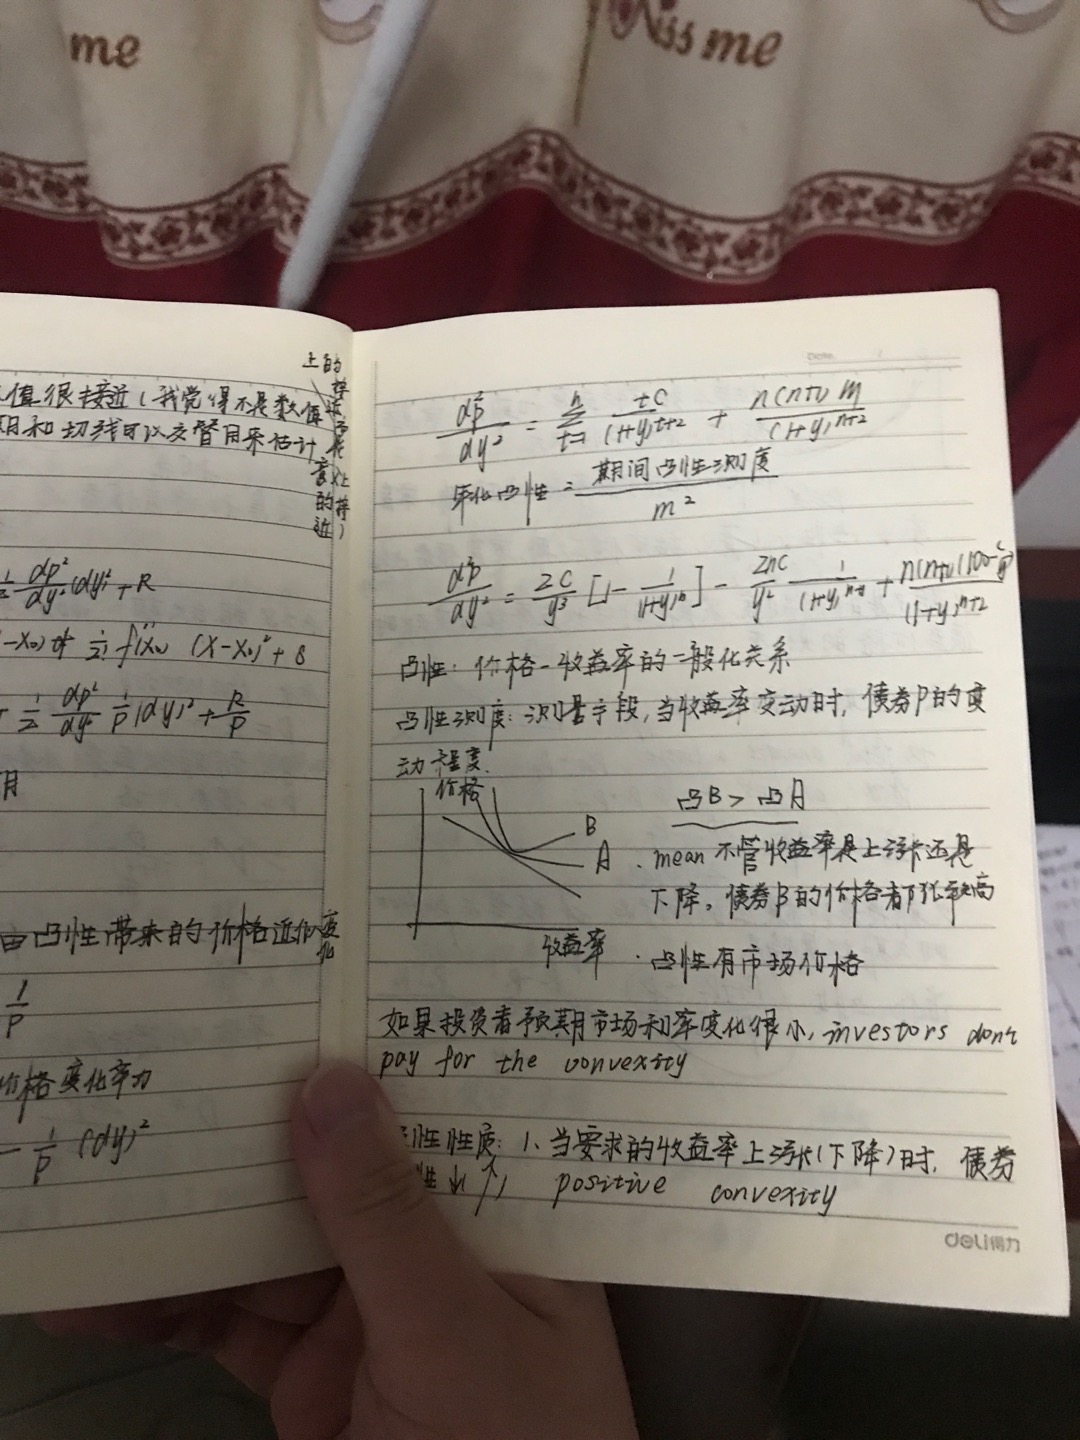 me
Kiss me
上的
值很接近（我觉得不是数值
期和切线可以交替用来估计
意义上
的
近
1/2 dp²/dy² (dy)² + R
(-x₀) + 1/2! f''(x₀) (x-x₀)² + 8
+ 1/2 dp²/dy² 1/p (dy)² + R/p
月
由凸性带来的价格近似变化
1/p
价格变化率为
- 1/p (dy)²
Date
d²p/dy² = Σ(t=1, n) tC/(1+y)^t+2 + n(n+1)M/(1+y)^n+2
年化凸性 = 期间凸性测度/m²
d²p/dy² = 2C/y³ [1 - 1/(1+y)^n] - 2nC/y² 1/(1+y)^n+1 + n(n+1)(100-c/y)/(1+y)^n+2
凸性：价格-收益率的一般化关系
凸性测度：测量手段，当收益率变动时，债券P的变
动程度.
价格
凸B > 凸A
B
A
. mean 不管收益率是上涨还是
下降，债券B的价格都较高
收益率
· 凸性有市场价格
如果投资者预期市场利率变化很小, investors don't
pay for the convexity
性性质：1、当要求的收益率上涨(下降)时，债券
性↓(↑) positive convexity
deli得力